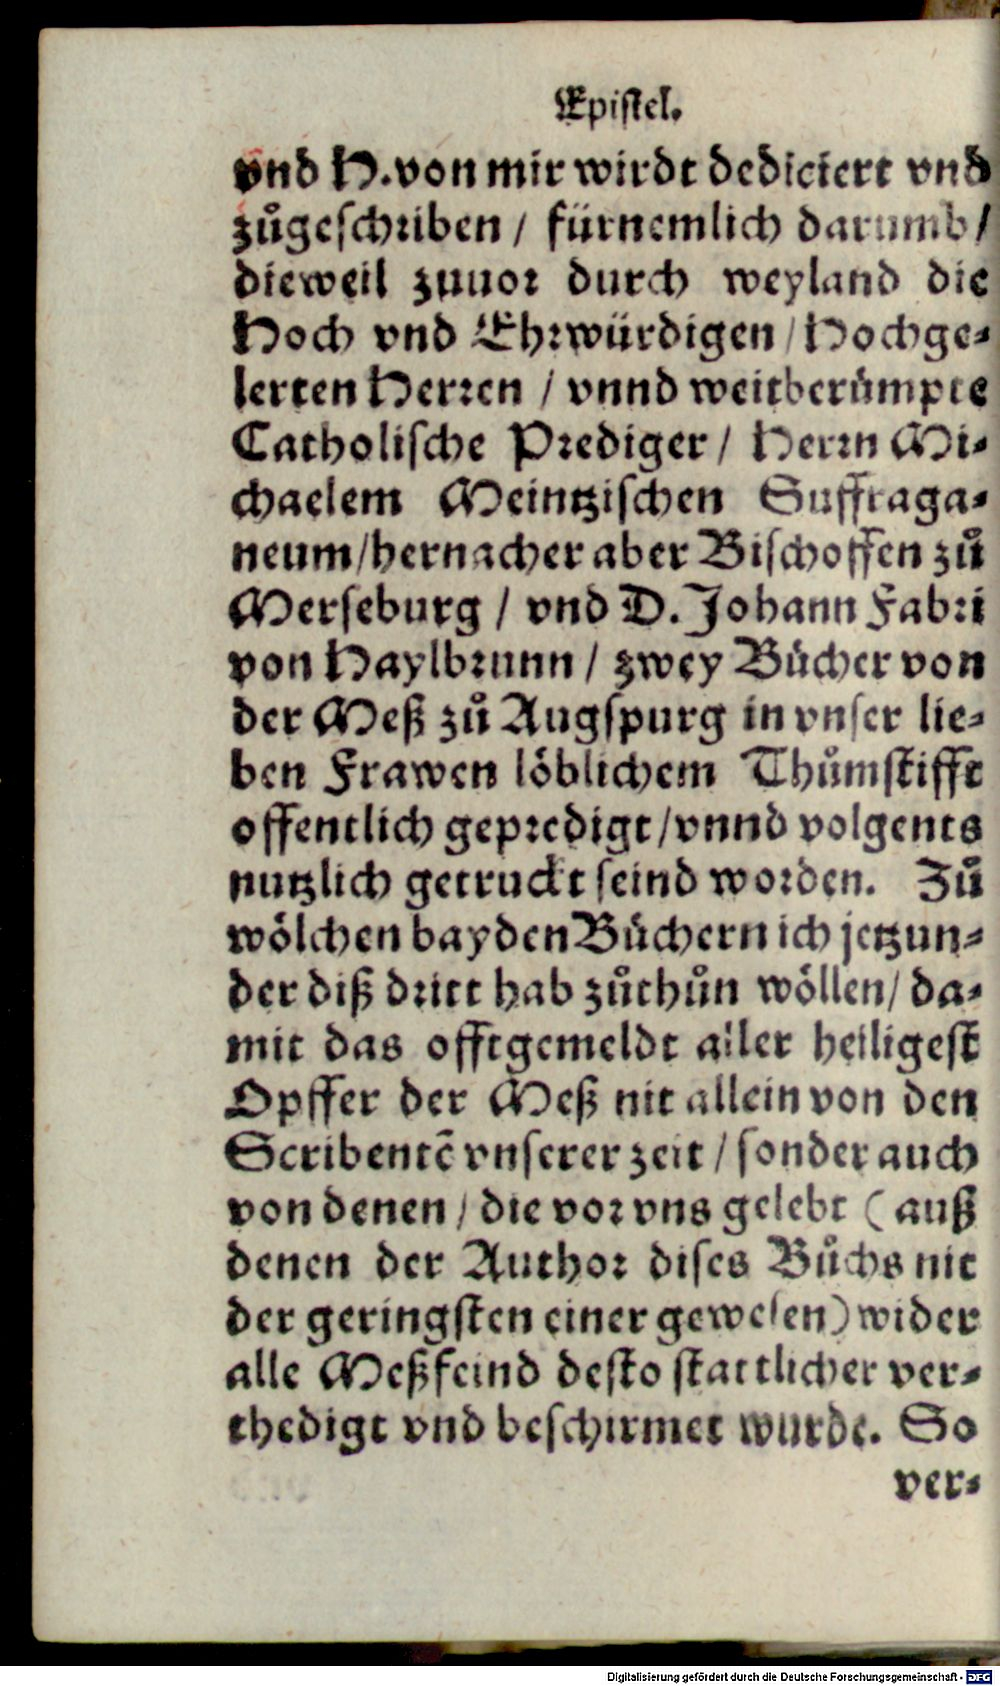 Epistel.
vnd H. von mir wirdt dediciert vnd
zůgeschriben / fürnemlich darumb /
dieweil zuuor durch weyland die
Hoch vnd Ehrwürdigen / Hochge-
lerten Herren / vnnd weitberůmpte
Catholische Prediger / Herrn Mi-
chaelem Meintzischen Suffraga-
neum / hernacher aber Bischoffen zů
Merseburg / vnd D. Johann Fabri
von Haylbrunn / zwey Bůcher von
der Meß zů Augspurg in vnser lie-
ben Frawen löblichem Thůmstifft
offentlich gepredigt / vnnd volgents
nutzlich getruckt seind worden. Zů
wölchen bayden Bůchern ich jetzun-
der diß dritt hab zůthůn wöllen / da-
mit das offtgemeldt aller heiligest
Opffer der Meß nit allein von den
Scribentẽ vnserer zeit / sonder auch
von denen / die vor vns gelebt (auß
denen der Author dises Bůchs nit
der geringsten einer gewesen) wider
alle Meßfeind desto stattlicher ver-
thedigt vnd beschirmet wurde. So
ver-
Digitalisierung gefördert durch die Deutsche Forschungsgemeinschaft - DFG